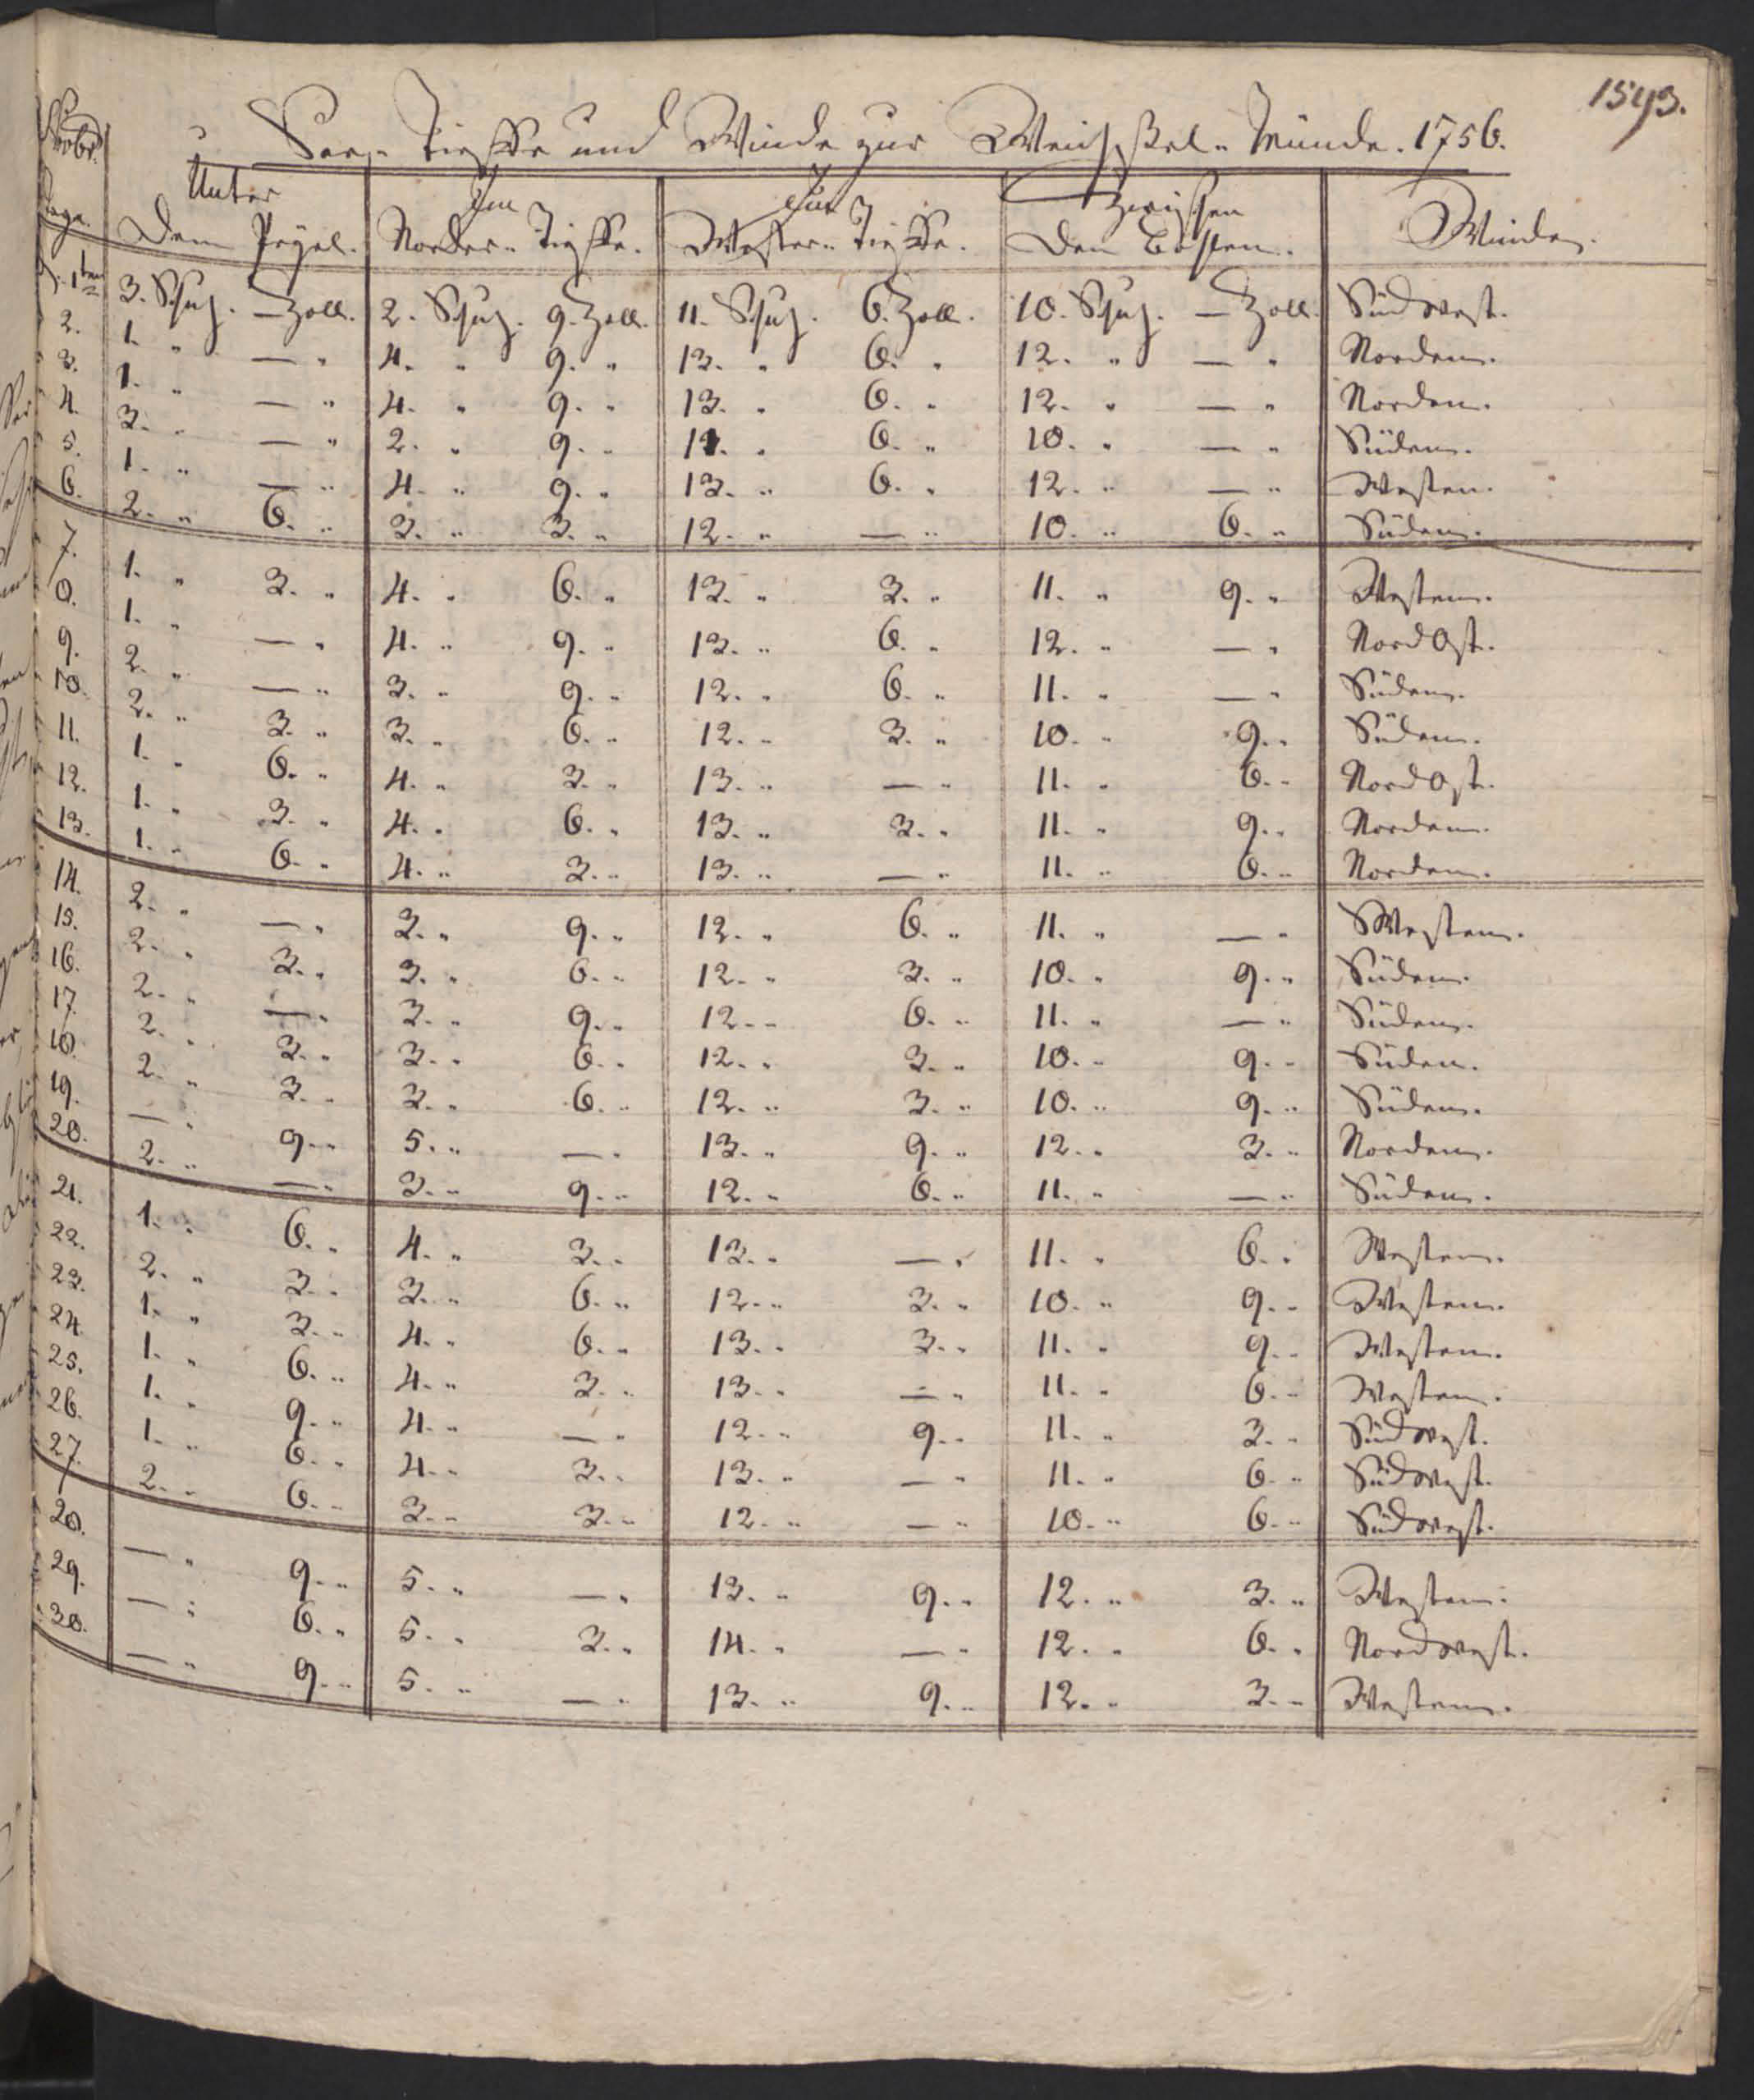 1543.
See- Tieffe und Winde zur Weichsel- Münde. 1756.
Tage. Unter Dem Pegel. Im Norder- Tieffe. Im Wester- Tieffe. Zwischen Den Winden.
1ten 3. Schuh. — Zoll. 2. Schuh. 9. Zoll. 11. Schuh. 6. Zoll. 10. Schuh. — Zoll. Südwest.
2. 1. " — " 4. " 9. " 13. " 6. " 12. " — " Norden.
3. 1. " — " 4. " 9. " 13. " 6. " 12. " — " Norden.
4. 3. " — " 2. " 9. " 11. " 6. " 10. " — " Süden.
5. 1. " — " 4. " 9. " 13. " 6. " 12. " — " Westen.
6. 2. " 6. " 3. " 3. " 12. " — " 10. " 6. " Süden.
7. 1. " 3. " 4. " 6. " 13. " 3. " 11. " 9. " Westen.
8. 1. " — " 4. " 9. " 13. " 6. " 12. " — " NordOst.
9. 2. " — " 3. " 9. " 12. " 6. " 11. " — " Süden.
10. 2. " 3. " 3. " 6. " 12. " 3. " 10. " 9. " Süden.
11. 1. " 6. " 4. " 3. " 13. " — " 11. " 6. " NordOst.
12. 1. " 3. " 4. " 6. " 13. " 3. " 11. " 9. " Norden.
13. 1. " 6. " 4. " 3. " 13. " — " 11. " 6. " Norden.
14. 2. " — " 3. " 9. " 12. " 6. " 11. " — " SWesten.
15. 2. " 3. " 3. " 6. " 12. " 3. " 10. " 9. " Süden.
16. 2. " — " 3. " 9. " 12. " 6. " 11. " — " Süden.
17. 2. " 3. " 3. " 6. " 12. " 3. " 10. " 9. " Süden.
18. 2. " 3. " 3. " 6. " 12. " 3. " 10. " 9. " Süden.
19. — " 9. " 5. " — " 13. " 9. " 12. " 3. " Norden.
20. 2. " — " 3. " 9. " 12. " 6. " 11. " — " Süden.
21. 1. " 6. " 4. " 3. " 13. " — " 11. " 6. " Westen.
22. 2. " 3. " 3. " 6. " 12. " 3. " 10. " 9. " Westen.
23. 1. " 3. " 4. " 6. " 13. " 3. " 11. " 9. " Westen.
24. 1. " 6. " 4. " 3. " 13. " — " 11. " 6. " Westen.
25. 1. " 9. " 4. " — " 12. " 9. " 11. " 3. " Südwest.
26. 1. " 6. " 4. " 3. " 13. " — " 11. " 6. " Südwest.
27. 2. " 6. " 3. " 3. " 12. " — " 10. " 6. " Südwest.
28. — " 9. " 5. " — " 13. " 9. " 12. " 3. " Westen.
29. — " 6. " 5. " 3. " 14. " — " 12. " 6. " Nordwest.
30. — " 9. " 5. " — " 13. " 9. " 12. " 3. " Westen.